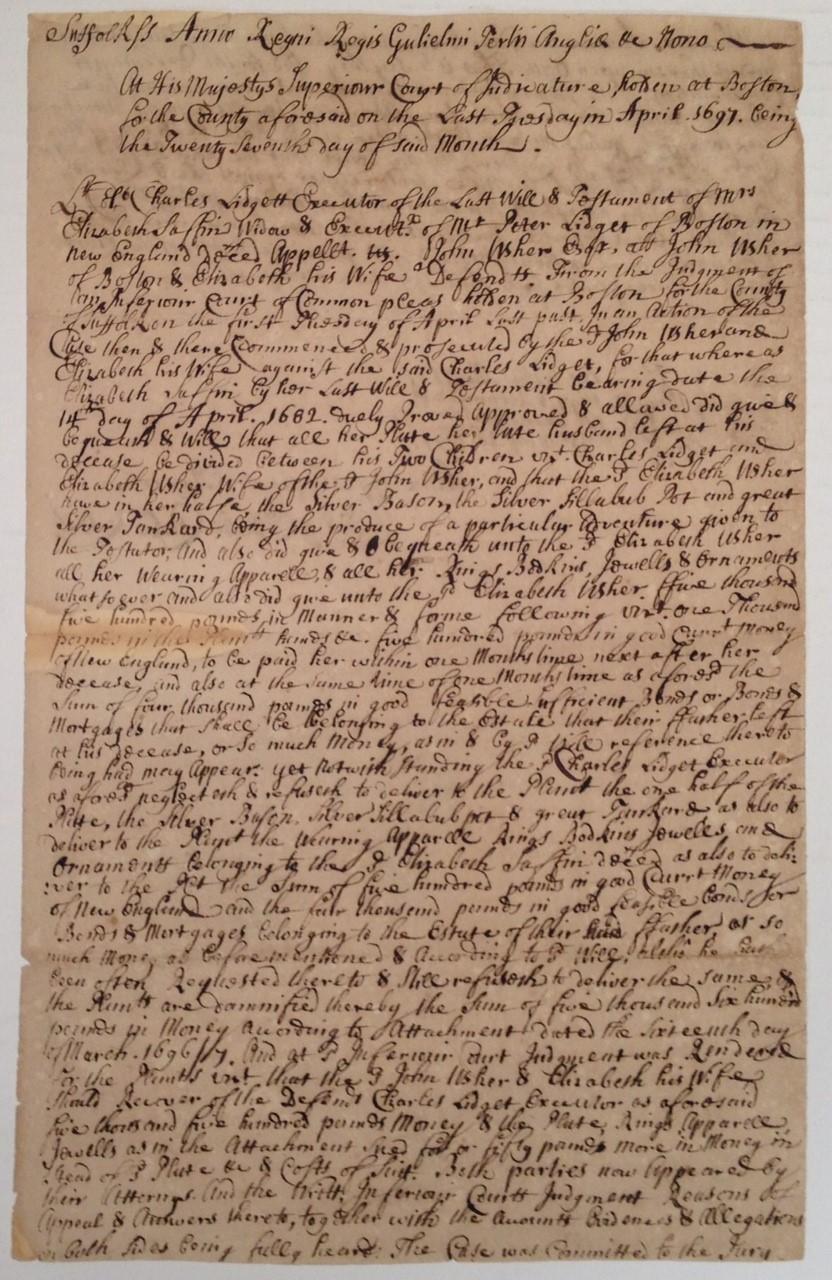 Suffolk ss Anno Regni Regis Gulielmi Tertii Angliæ &c Nono
At His Majestys Superiour Court of Judicature, holden at Boston,
for the County aforesaid on the Last Tuesday in April. 1697. being
the Twenty Seventh day of said Month.
Charles Lidgett Executor of the Last Will & Testament of Mrs
Elizabeth Saffin Widow & Execut.x of Mr Peter Lidget of Boston in
New England deced Appellt. vs. John Usher Esqr. als John Usher
of Boston & Elizabeth his Wife Defendts. From the Judgment of
an Inferiour Court of Common pleas holden at Boston for the County
of Suffolk on the first Tuesday of April Last past, in an action of the
Case then & there Commenced & prosecuted by the sd John Usher and
Elizabeth his Wife against the said Charles Lidget, for that where as
Elizabeth Saffin by her Last Will & Testament bearing date the
14th day of April. 1682. duely Proved approved & allowed did give &
bequeath & Will that all her Plate her late husband left at his
decease be divided between his Two Children vizt. Charles Lidget and
Elizabeth Usher Wife of the sd John Usher, and that the sd Elizabeth Usher
have in her halfe, the Silver Bason, the Silver Sillabub Pot and great
Silver Tankard, being the produce of a particular adventure given to
the Testator; And also did give & bequeath unto the sd Elizabeth Usher
all her Wearing Apparell, & all her Rings Bodkins, Jewells & Ornaments
whatsoever and also did give unto the sd Elizabeth Usher. ffive thousand
five hundred pounds, in Manner & forme following vizt. one Thousand
pounds in the Plaint hands &c. five hundred pounds in good Currt money
of New England, to be paid her within one Months time next after her
decease, and also at the same time of one Months time as aforesd the
Sum of four thousand pounds in good feasible sufficient Bonds or Bonds &
Mortgages that shall be belonging to the Estate that their ffather left
at his decease, or so much Money, as in & by sd Will reference thereto
being had may Appear. yet notwithstanding the sd Charles Lidget Executor
as aforesd neglecteth & refuseth to deliver to the Plaint the one half of the
Plate, the Silver Bason, Silver Sillabub pot & great Tankard as also to
deliver to the Plaint the Wearing Apparell Rings Bodkins Jewells, and
Ornaments belonging to the sd Elizabeth Saffin deced as also to deli-
ver to the Plt the Sum of five hundred pounds in good Currt Money
of New England and the four thousand pounds in good feasible bonds or
Bonds & Mortgages belonging to the Estate of their ffather, or so
much Money as before mentioned & According to sd Will, altho he hath
been often Requested thereto & Still refuseth to deliver the same &
the Plaints are damnified thereby the Sum of five thousand Six hundred
pounds in Money According to Attachment dated the Sixteenth day
of March. 1696/7. And at sd Inferiour Court Judgment was Rendered
for the Plaints vizt that the sd John Usher & Elizabeth his Wife
should Recover of the Defendt Charles Lidget Executor as aforesaid
five thousand five hundred pounds Money & the Plate, Rings Apparell
Jewells as in the Attachment Sued for or fifty pounds more in Money in
Stead of sd Plate &c & Costs of Suit. Both parties now Appeared by
their Attornys. And the Writt, Inferiour Courts Judgment Reasons of
Appeal & Answers thereto, together with the Accounts Evidences & Allegations
on both sides being fully heard; The Case was Committed to the Jury